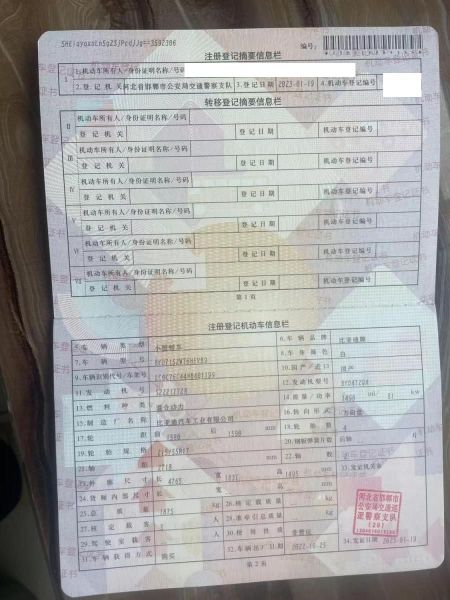 编号:
注册登记摘要信息栏
I 1.机动车所有人/身份证明名称/号码
2.登记机关 河北省邯郸市公安局交通警察支队 3.登记日期 2023-01-19 4.机动车登记编号
转移登记摘要信息栏
II 机动车所有人/身份证明名称/号码
登记机关 登记日期 机动车登记编号
III 机动车所有人/身份证明名称/号码
登记机关 登记日期 机动车登记编号
IV 机动车所有人/身份证明名称/号码
登记机关 登记日期 机动车登记编号
V 机动车所有人/身份证明名称/号码
登记机关 登记日期 机动车登记编号
VI 机动车所有人/身份证明名称/号码
登记机关 登记日期 机动车登记编号
VII 机动车所有人/身份证明名称/号码
登记机关 登记日期 机动车登记编号
第1页
注册登记机动车信息栏
5.车辆类型 小型轿车 6.车辆品牌 比亚迪牌
7.车辆型号 8.车身颜色 白
9.车辆识别代号/车架号 10.国产/进口 国产
11.发动机号 12.发动机型号 BYD472QA
13.燃料种类 混合动力 14.排量/功率 1498 ml/ 81 kw
15.制造厂名称 比亚迪汽车工业有限公司 16.转向形式 方向盘
17.轮距 前 1580 后 1590 mm 18.轮胎数 4
19.轮胎规格 20.钢板弹簧片数 后轴 片
21.轴距 2718 mm 22.轴数
23.外廓尺寸 长 4765 宽 1837 高 1495 mm 33.发证机关章
24.货厢内部尺寸 长 宽 高 mm
25.总质量 1875 kg 26.核定载质量 kg
27.核定载客 人 28.准牵引总质量 kg
29.驾驶室载客 人 30.使用性质 非营运
31.车辆获得方式 购买 32.车辆出厂日期 34.发证日期 2023-01-19
河北省邯郸市
公安局交通巡
逻警察支队
第2页